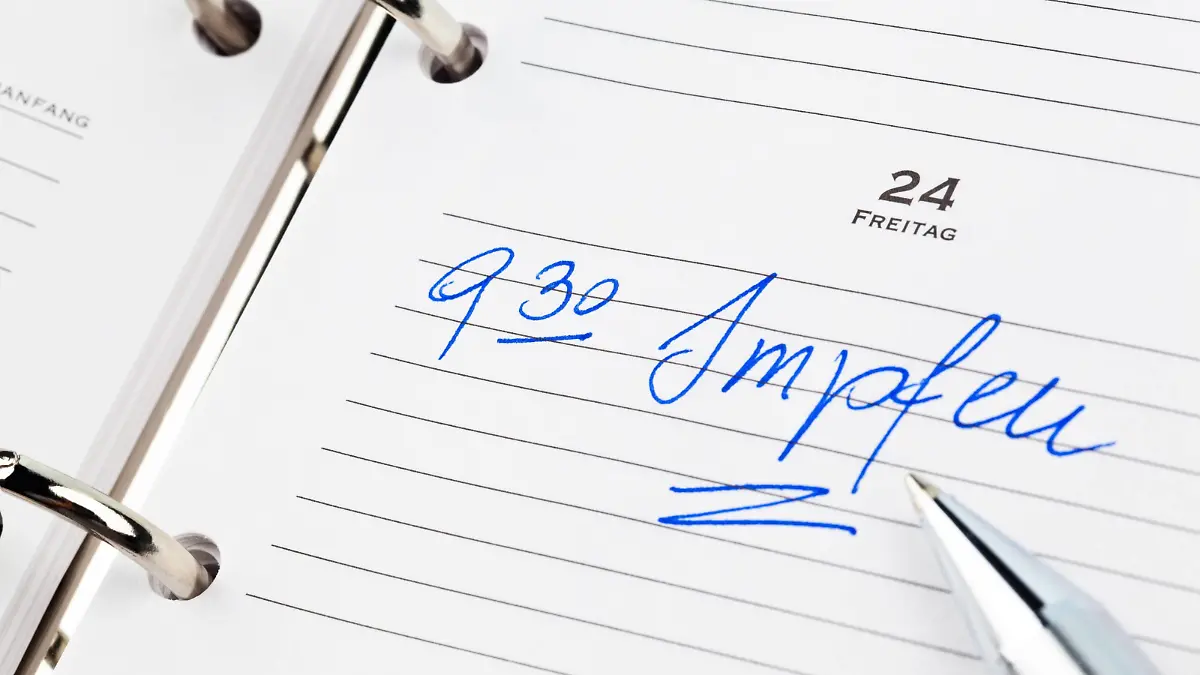 ANFANG
24
FREITAG
9 30 Impfen